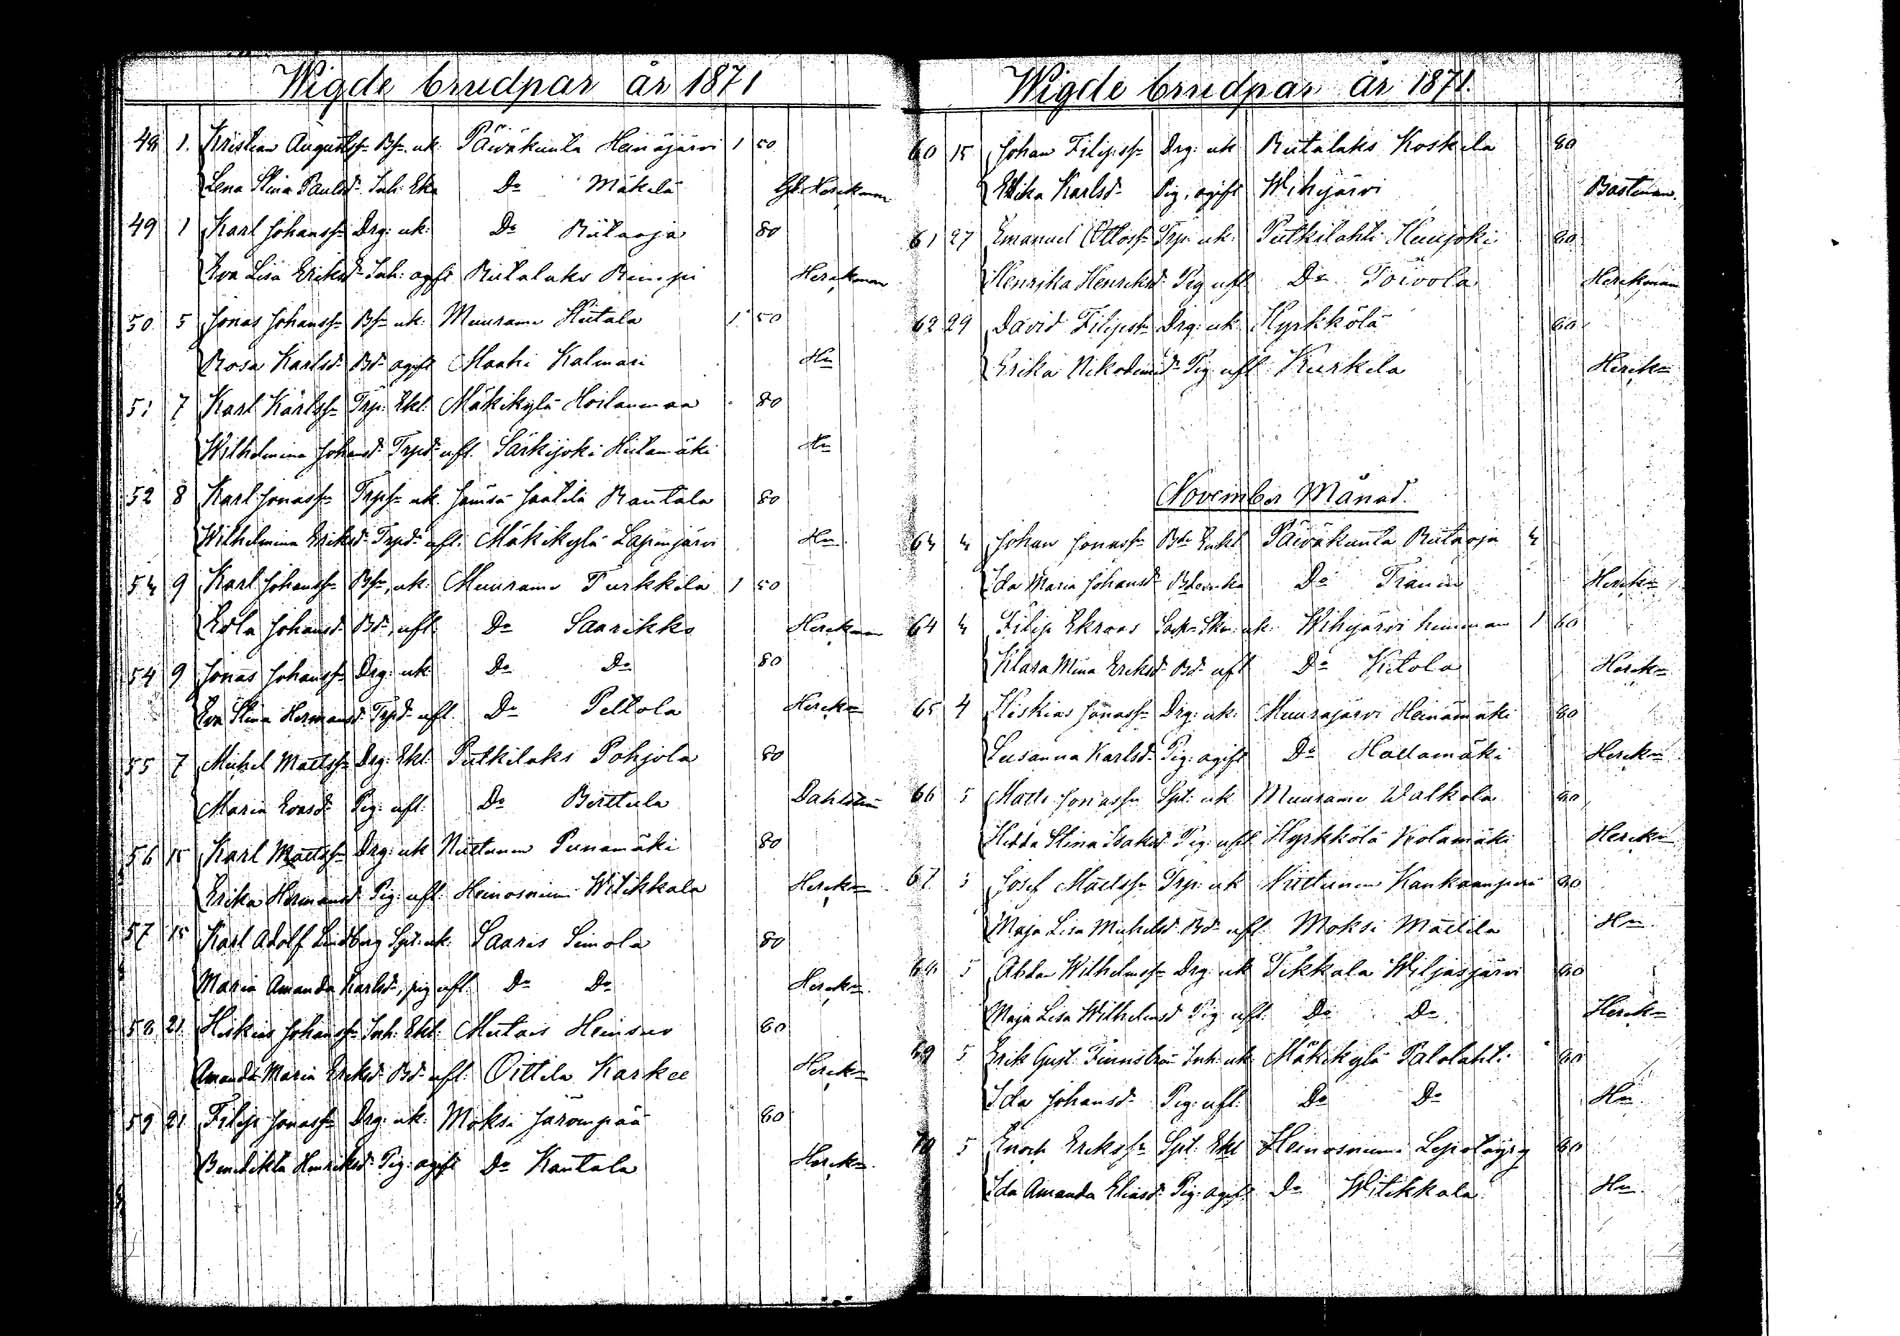 Wigde brudpar år 1871
48 1. Kristian Augustss: Bs: uk. Päiväkunta Heinäjärvi 1 50
Lena Stina Paulsd: Inh: Eka Do Mäkelä Herckman
49 1 Karl Johanss: Drg: uk: Do Riitaoja 80
Eva Lisa Eriksd: Inh: ogft Rutalaks Rimpi Herckman
50 5 Jonas Johanss: Bs: uk: Muurame Hiitala 1 50
Rosa Karlsd: Bd: ogft Maahi Kalmari Hn
51 7 Karl Karlss: Trp: Ekl: Mäkikylä Hoilanmaa 80
Wilhelmina Johansd: Trpd: ufl. Särkijoki Hiitamäki Hn
52 8 Karl Jonass: Trps: uk. Jämsä Jaatila Rautala 80
Wilhelmina Eriksd: Trpd: ufl. Mäkikylä Lapinjärvi Hn
54 9 Karl Johanss: Bs: uk: Muurame Turkkila 1 50
Eva Johansd: Bd: ufl. Do Saarikko Herckman
54 9 Jonas Johanss: Drg: uk Do Do 80
Eva Stina Hermansd: Trpd: ufl. Do Peltola Herckn
55 7 Michel Mattss: Drg: Ekl: Putkilaks Pohjola 80
Maria Evasd: Pig: ufl. Do Berttula Dahlström
56 15 Karl Mattss: Drg: uk Niittunen Punamäki 80
Erika Hermansd: Pig: ufl. Heinosniemi Witikkala Herckn
57 15 Karl Adolf Lindberg Spt: uk: Saaris Simola 80
Maria Amanda Karlsd: pig ufl. Do Do Herckn
58 21. Hiskias Johanss: Inh: Ekl: Mutais Heinsuo 80
Amanda Maria Eriksd: Bd: ufl: Oittila Karkee Herckn
59 21 Filip Jonass: Drg: uk: Moksi Järvenpää 80
Benedikta Henriksd: Pig: ogft Do Kautala Herckn
Wigde brudpar år 1871.
60 15 Johan Filipss: Drg: uk Rutalaks Koskela 80
Erika Karlsd: Pig, ogift Wihijärvi Bastman.
61 27 Emanuel Ottoss: Trp: uk: Putkilahti Huujoki 80
Henrika Henriksd: Pig ufl. Do Toivola Herckman
62 29 David Filipss: Drg: uk Kyrkkölä 80
Erika Nikodemid: Pig ufl Kurkela Herckn
November Månad.
64 4 Johan Jonass: Bde Enkl Päiväkunta Riitaoja 4
Ida Maria Johansd: Bdeenka Do Franin Herckn
64 4 Filip Ekroos Sock: Skr: uk: Wihijärvi hemman 1 60
Klara Mina Eriksd: Bd: ufl Do Kitola Herckn
65 4 Hiskias Jonass: Drg: uk: Muurajärvi Heinämäki 80
Susanna Karlsd: Pig: ogift Do Hallamäki Herckn
66 5 Matts Jonass: Spt: uk Muurame Walkola 80
Hedda Stina Isaksd: Pig: ufl Kyrkkölä Kolamäki Herckn
67 5 Josef Mattss: Trp: uk Niittunen Kankaanperä 80
Maja Lisa Michelsd: Bd: ufl. Moksi Mattila Hn
68 5 Abdon Wilhelmss: Drg: uk Tikkala Wiljasjärvi 80
Maja Lisa Wilhelmsd Pig ufl. Do Do Herckn
69 5 Erik Gust. Finnström Inh: uk: Mäkikylä Palolahti 80
Ida Johansd: Pig: ufl. Do Do Hn
70 5 Enoch Erikss: Spt: Ekl Heinosniemi 80
Ida Amanda Eliasd: Pig: ogft Do Witikkala Hn